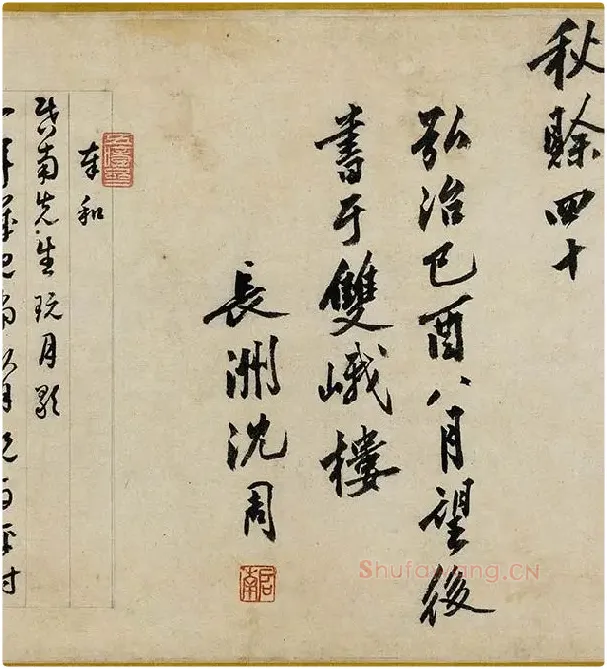 秋賒四十
弘治己酉八月望後
書于雙峨樓
長洲沈周
啟南
奉和
啓南先生玩月歌
一年
Shufawang.CN